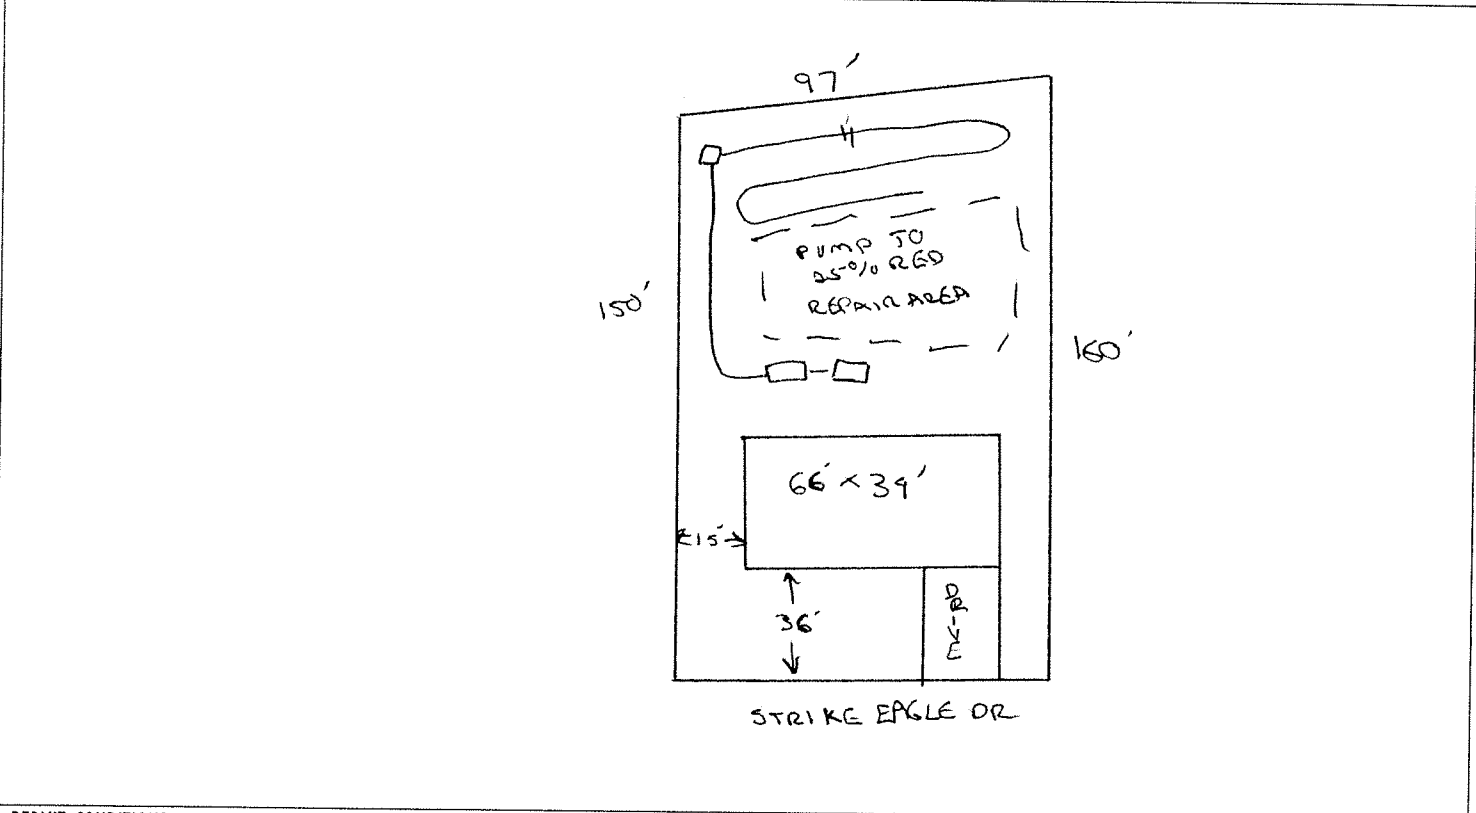 97'
PUMP TO
25% RED
REPAIR AREA
150'
160'
66' × 34'
15'
36'
DRIVE
STRIKE EAGLE DR